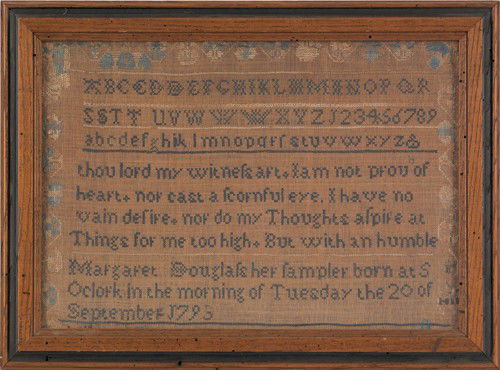 ABCCDDEFGHIKLMMNNOPQR
SSTT UVWWXYZ123456789
abcdefghiklmnopqrſstuvwxyz&
thou lord my witneſs art. I am not proud of
heart. nor cast a ſcornful eye. I have no
vain deſire. nor do my Thoughts aſpire at
Things for me too high. But with an humble
Margaret Douglaſs her ſampler born at 5
Oclork in the morning of Tuesday the 20 of
September 1793